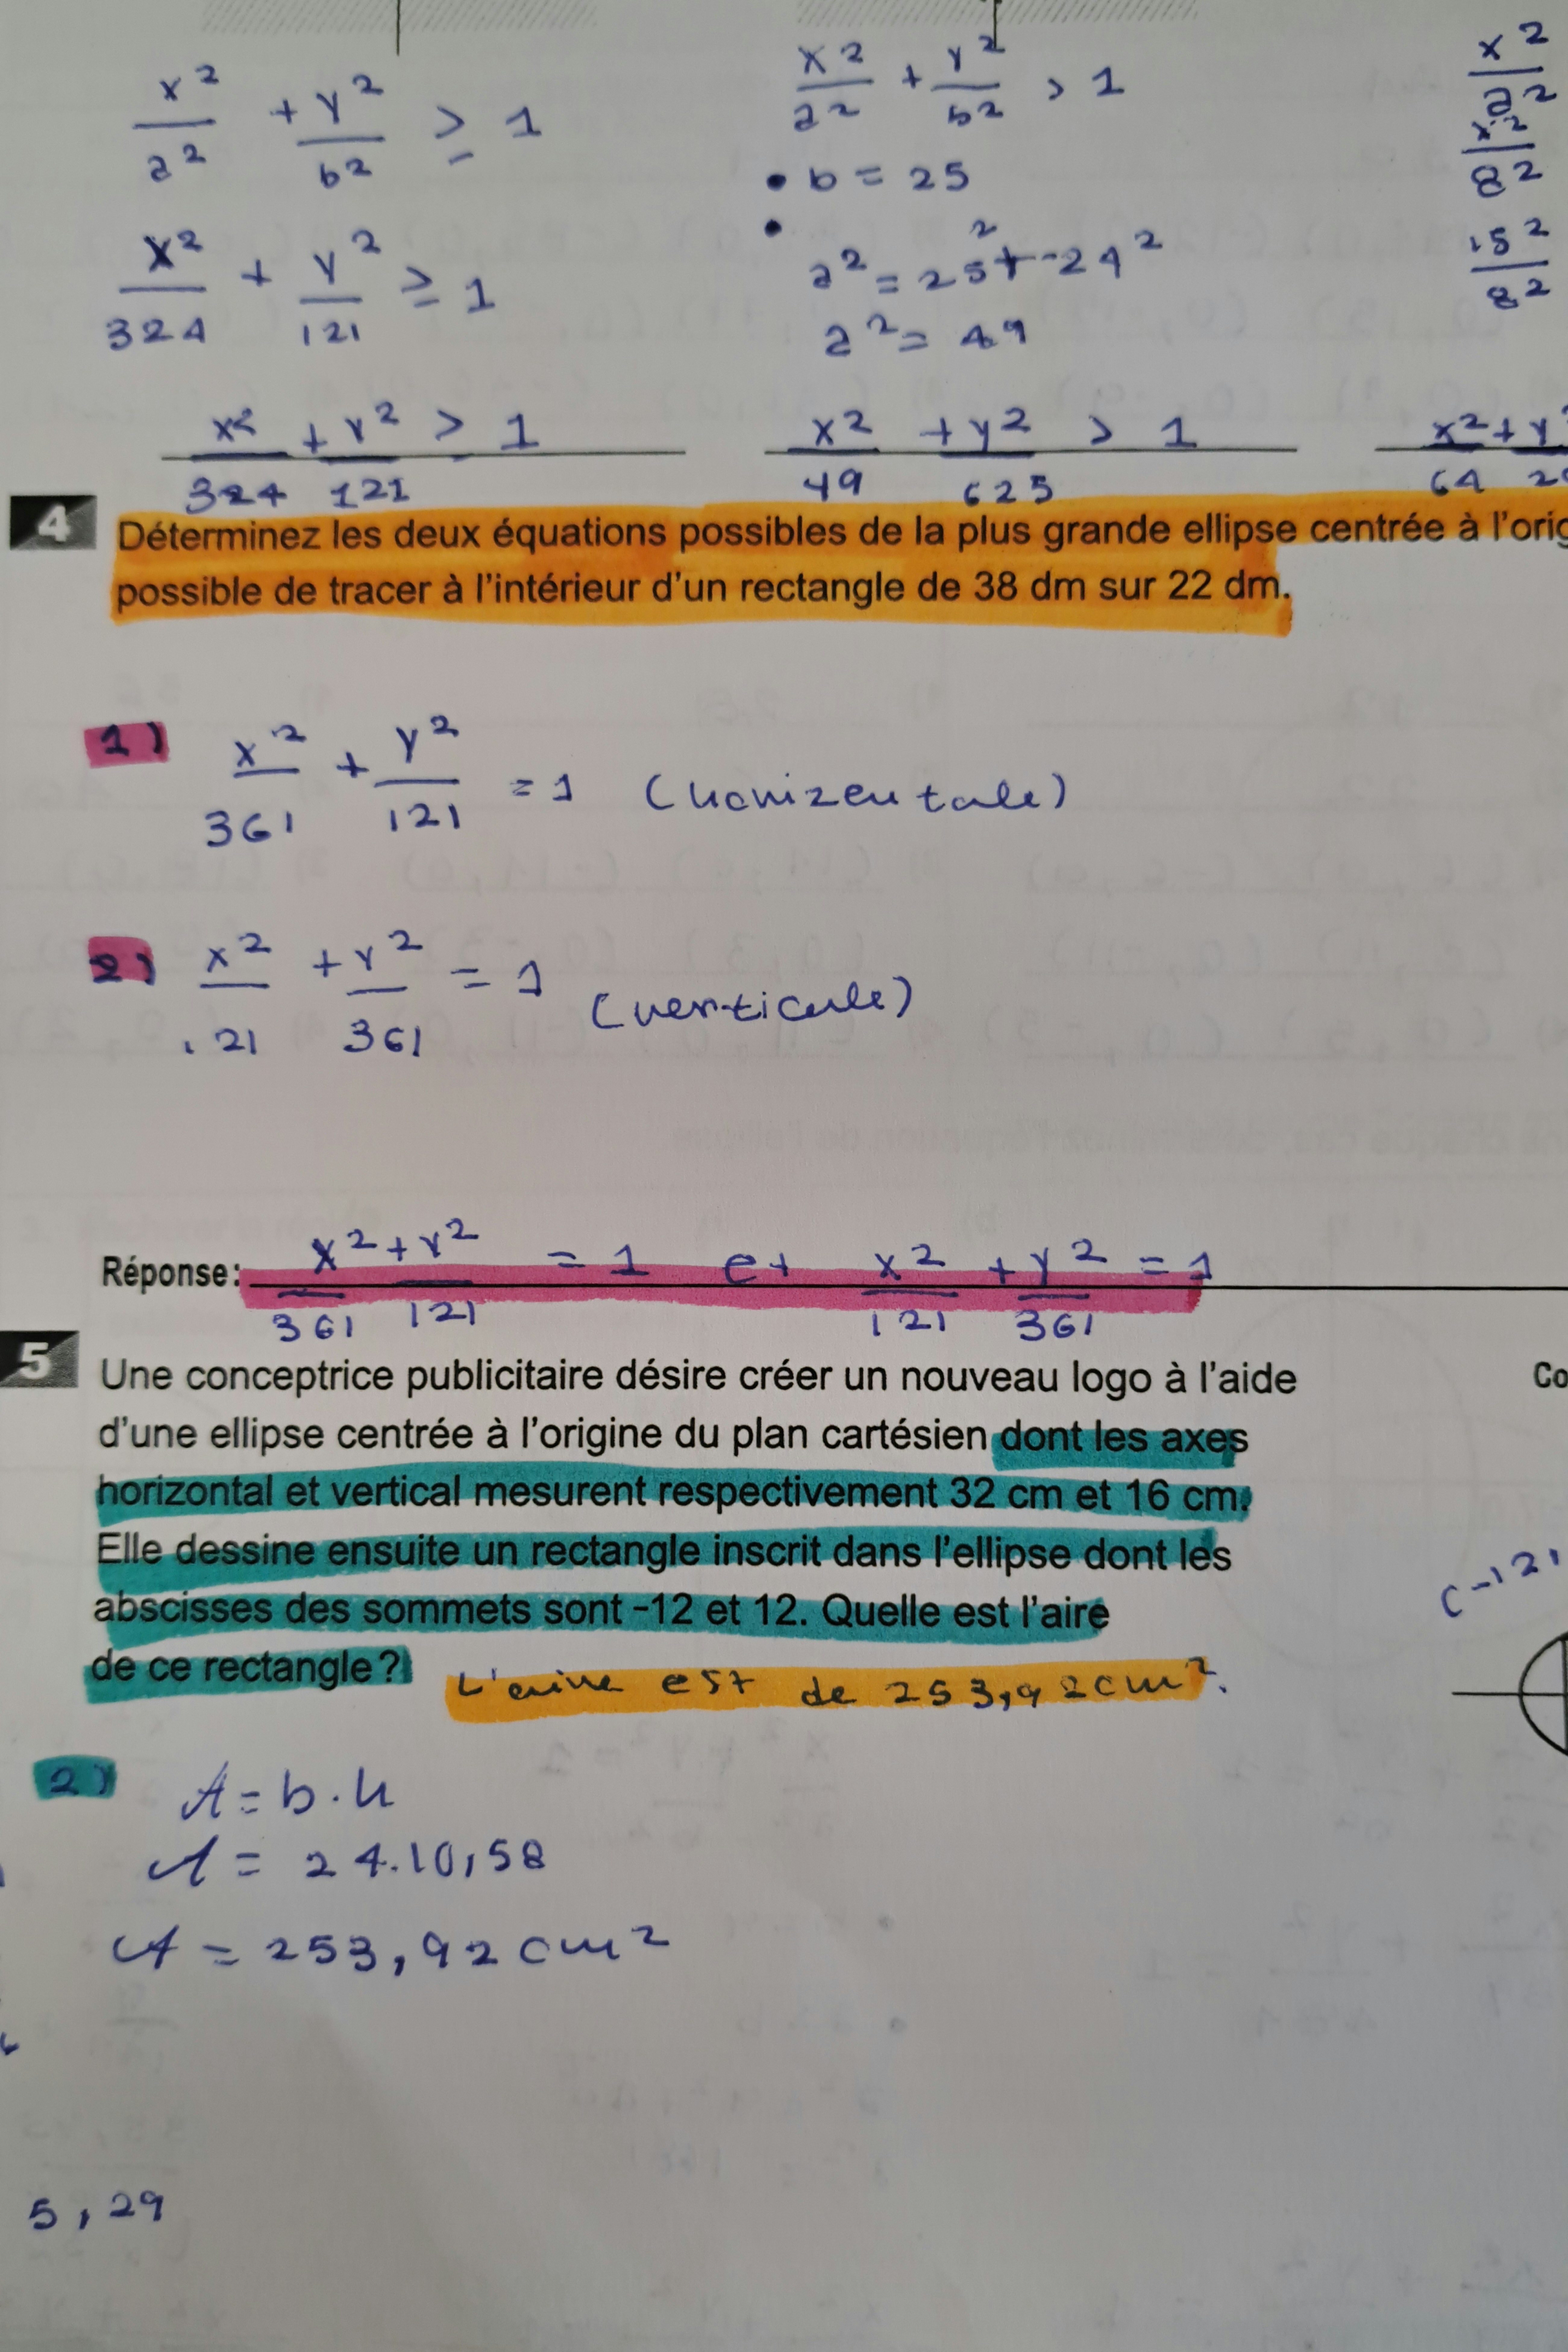 x²/a² + y²/b² ≥ 1
x²/324 + y²/121 ≥ 1
x²/324 + y²/121 ≥ 1
x²/a² + y²/b² > 1
• b = 25
•
a² = 25² + -24²
a² = 49
x²/49 + y²/625 > 1
x²/a²
x²/8²
15²/8²
x²/64 + y
4 Déterminez les deux équations possibles de la plus grande ellipse centrée à l'orig
possible de tracer à l'intérieur d'un rectangle de 38 dm sur 22 dm.
1) x²/361 + y²/121 = 1 (horizentale)
2) x²/121 + y²/361 = 1 (verticale)
Réponse: x²/361 + y²/121 = 1 et x²/121 + y²/361 = 1
5 Une conceptrice publicitaire désire créer un nouveau logo à l'aide
Co
d'une ellipse centrée à l'origine du plan cartésien dont les axes
horizontal et vertical mesurent respectivement 32 cm et 16 cm.
Elle dessine ensuite un rectangle inscrit dans l'ellipse dont les
abscisses des sommets sont -12 et 12. Quelle est l'aire
(-12,
de ce rectangle? L'aire est de 253,92 cm².
2) A = b·h
A = 24.10,58
A = 253,92 cm²
5,29